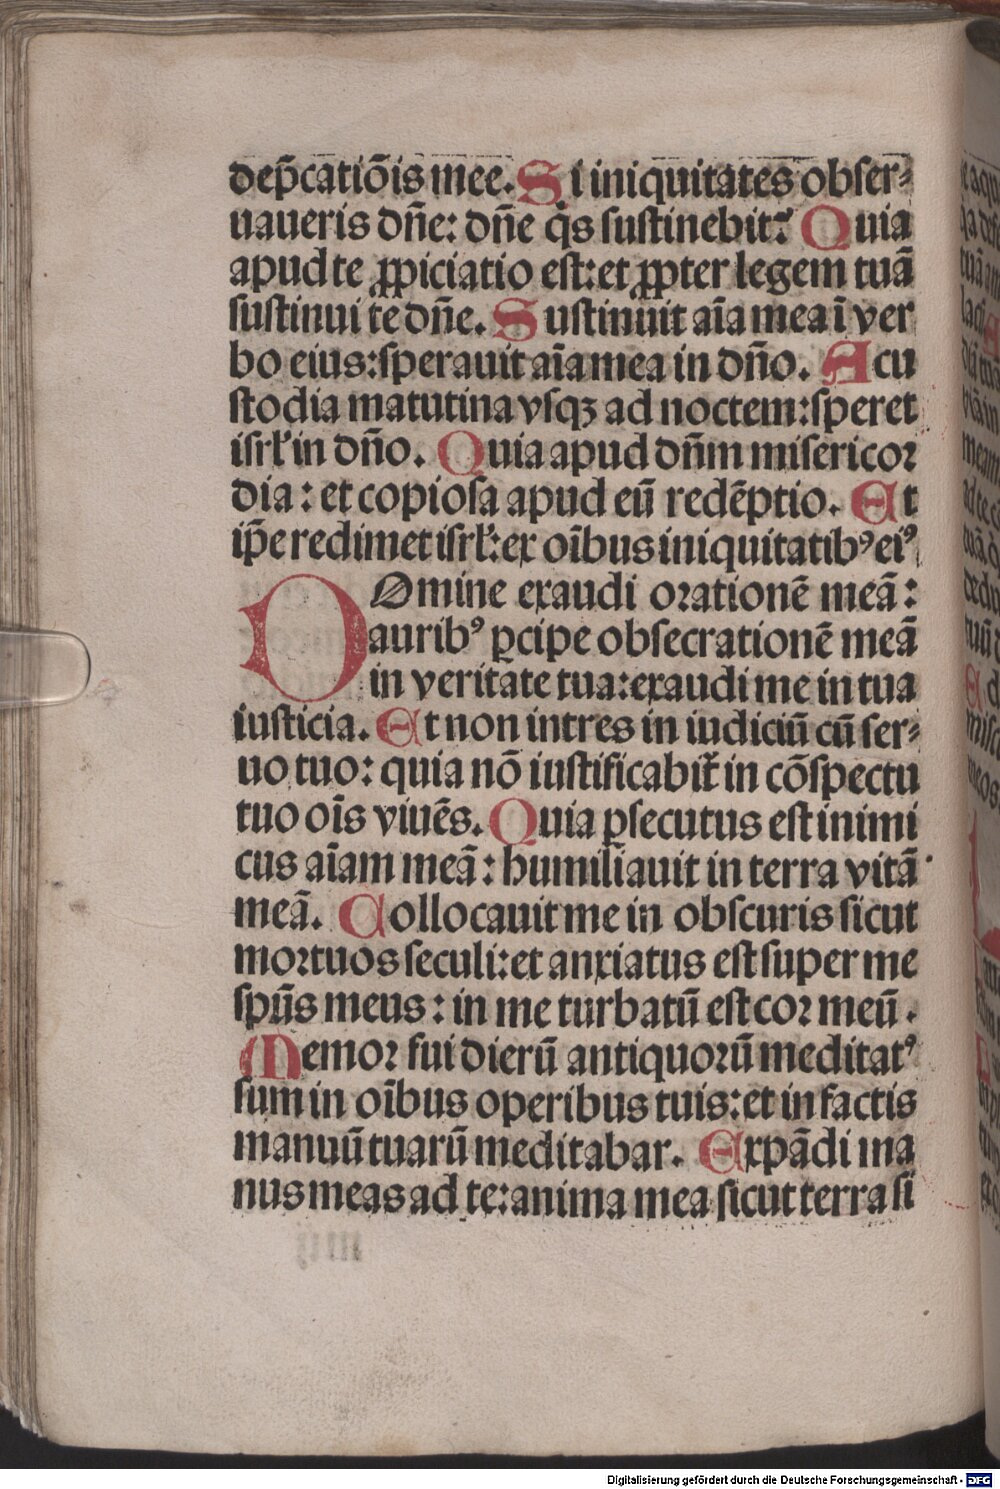 dep̃catiõis mee. Si iniquitates obser⸗
uaueris dñe: dñe q̇s sustinebit: Quia
apud te ꝓpiciatio est: et ꝓpter legem tuã
sustinui te dñe. Sustinuit aĩa mea ĩ ver
bo eius: sperauit aĩa mea in dño. A cu
stodia matutina vsqꝫ ad noctem: speret
isrl̃ in dño. Quia apud dñm misericor
dia: et copiosa apud eũ redẽptio. Et
ip̃e redimet isrl̃: ex oĩbus iniquitatibꝰ eiꝰ
DOmine exaudi orationẽ meã:
auribꝰ ꝑcipe obsecrationẽ meã
in veritate tua: exaudi me in tua
iusticia. Et non intres in iudiciũ cũ ser⸗
uo tuo: quia nõ iustificabit̃ in cõspectu
tuo oĩs viuẽs. Quia ꝑsecutus est inimi
cus aĩam meã: humiliauit in terra vitã
meã. Collocauit me in obscuris sicut
mortuos seculi: et anxiatus est super me
spũs meus: in me turbatũ est cor meũ.
Memor fui dierũ antiquorũ meditatꝰ
sum in oĩbus operibus tuis: et in factis
manuũ tuarũ meditabar. Expãdi ma
nus meas ad te: anima mea sicut terra si
Digitalisierung gefördert durch die Deutsche Forschungsgemeinschaft - DFG